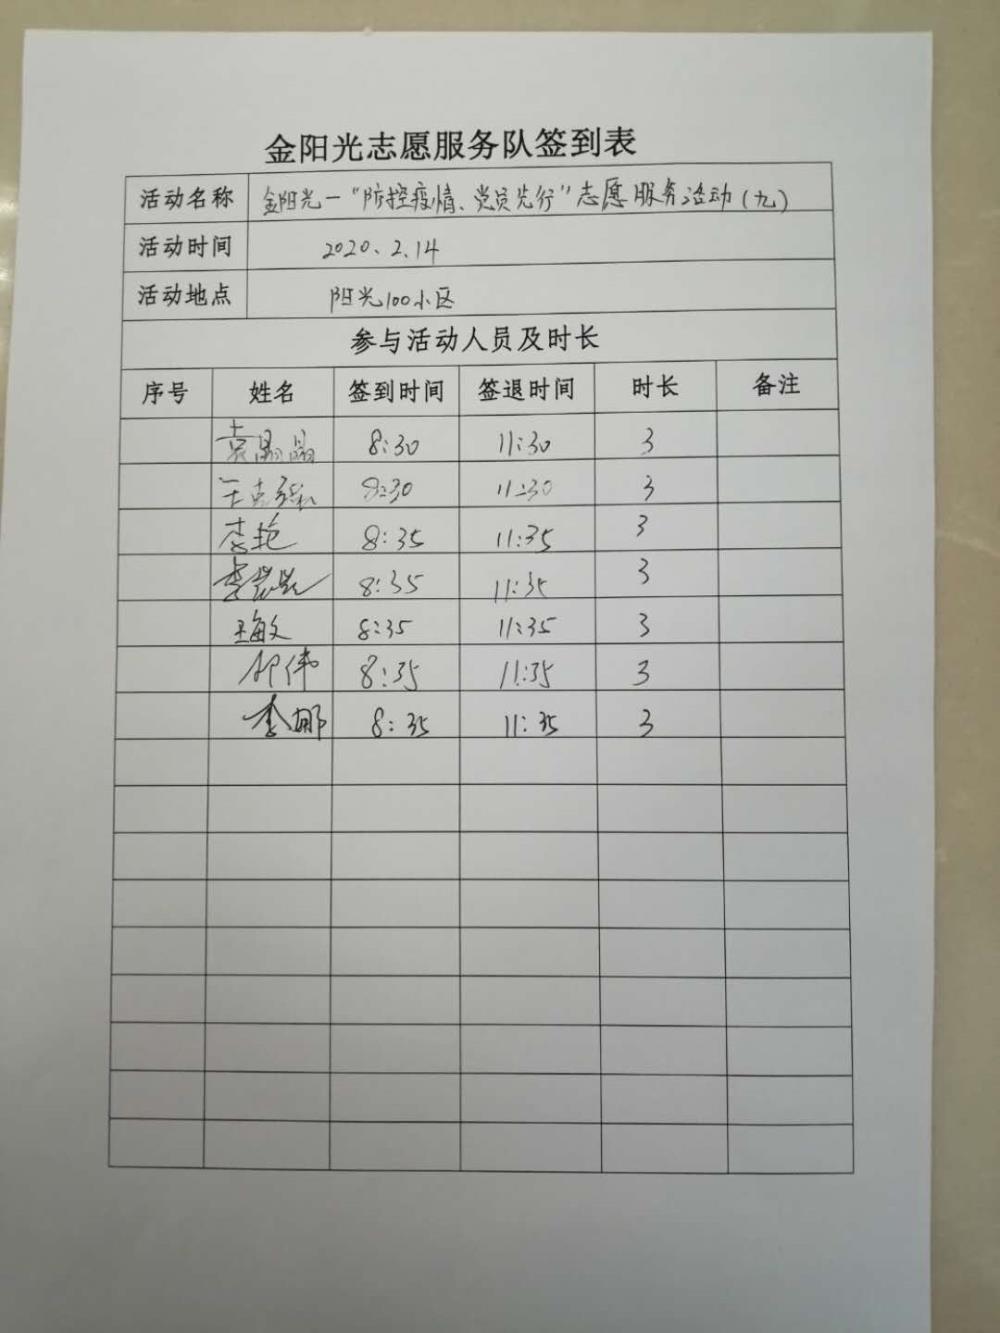 金阳光志愿服务队签到表
活动名称 金阳光—“防控疫情、党员先行”志愿服务活动(九)
活动时间 2020、2.14
活动地点 阳光100小区
参与活动人员及时长
序号 姓名 签到时间 签退时间 时长 备注
袁晶晶 8:30 11:30 3
8:30 11:30 3
李艳 8:35 11:35 3
李 8:35 11:35 3
王海文 8:35 11:35 3
伟 8:35 11:35 3
李娜 8:35 11:35 3